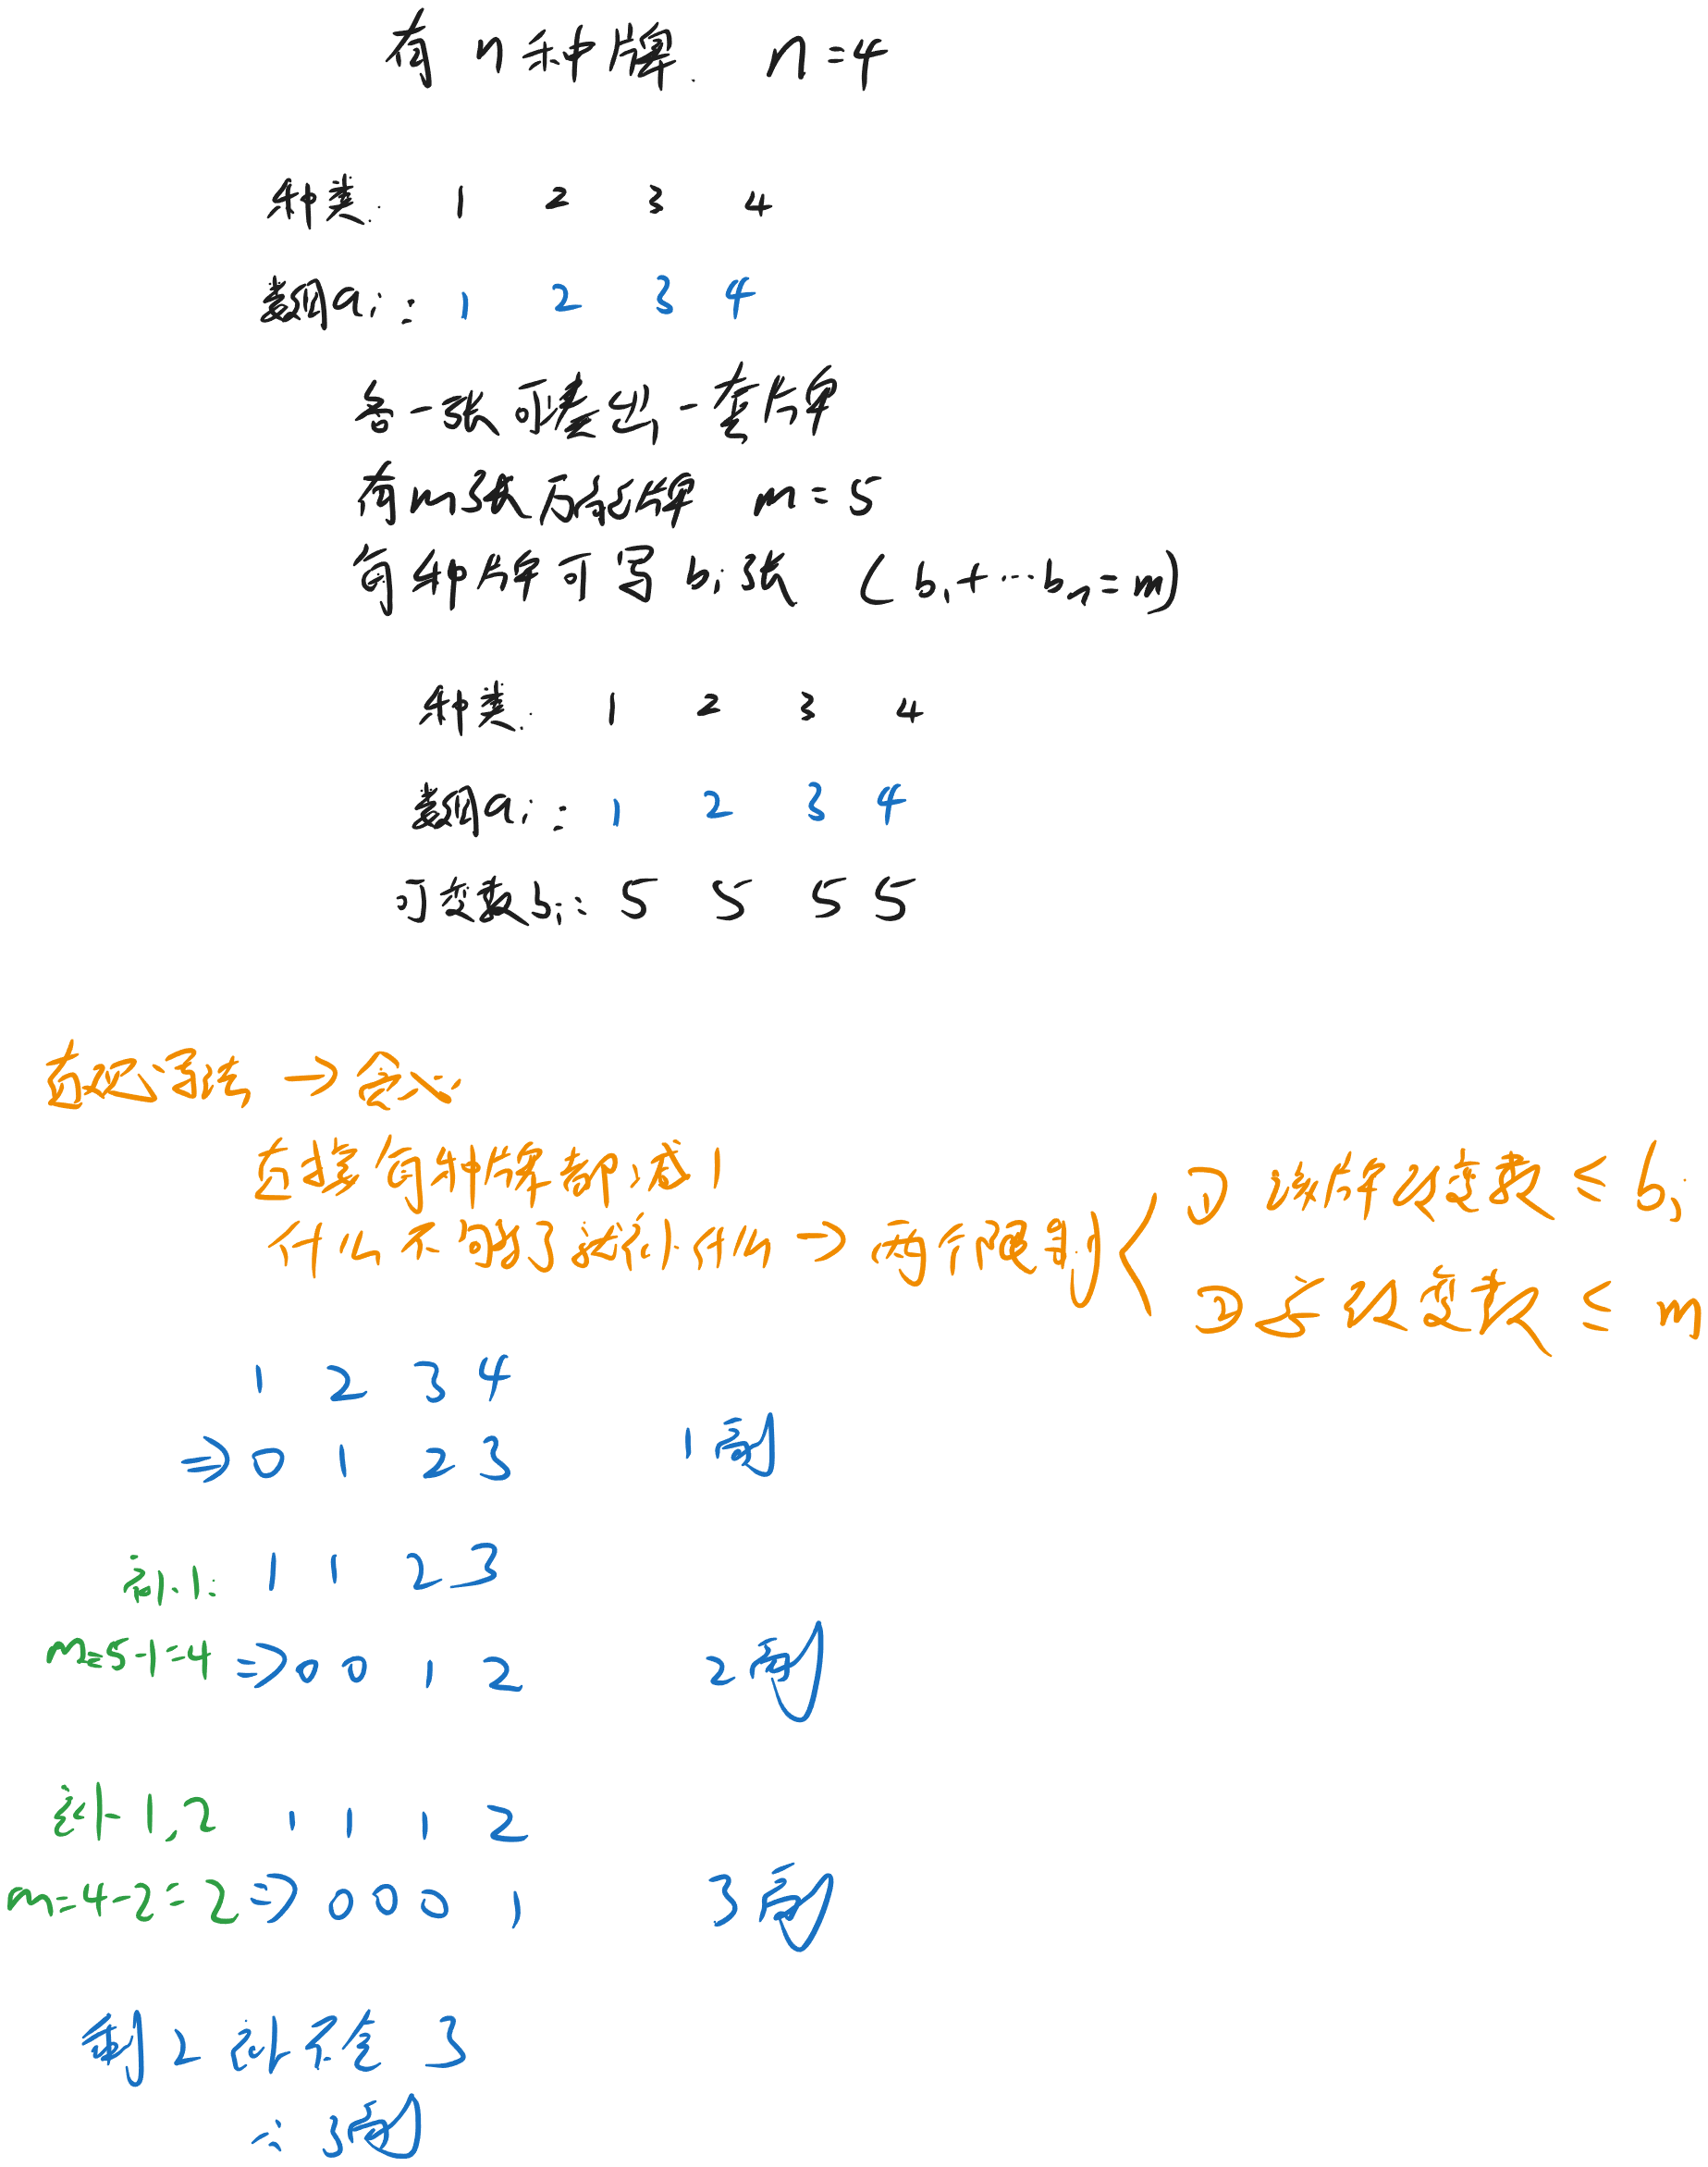 有 n种牌. n=4
种类: 1 2 3 4
数量ai: 1 2 3 4
各一张可凑出一套牌
有m张万能牌 m=5
每种牌可写bi张 (b1+…bn=m)
种类: 1 2 3 4
数量ai: 1 2 3 4
可变数bi: 5 5 5 5
直观写法 → 贪心
直接每种牌都减1
什么不够了就补什么 → 两个限制
① 该牌改变数 ≤ bi
② 总改变数 ≤ m
1 2 3 4
⇒ 0 1 2 3 1副
补1: 1 1 2 3
m=5-1=4 ⇒ 0 0 1 2 2副
补1,2 1 1 1 2
m=4-2=2 ⇒ 0 0 0 1 3副
剩2补不住3
∴ 3副